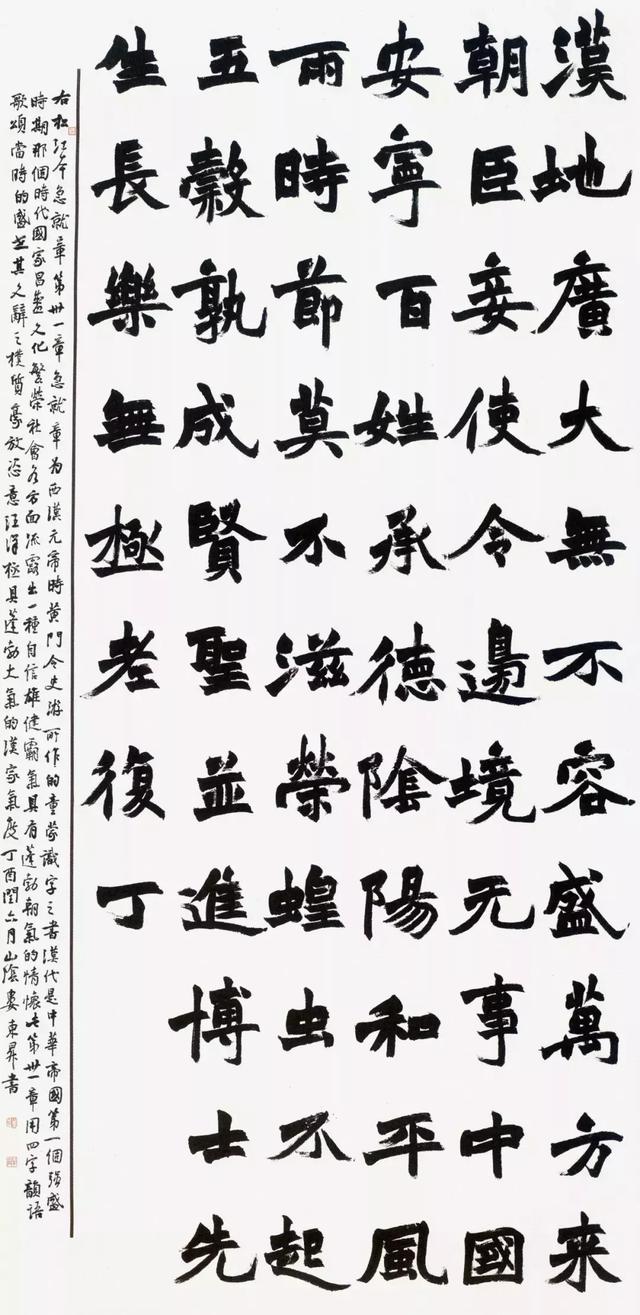 漢地廣大無不容盛萬方来
朝臣妾使令邊境无事中國
安寧百姓承德陰陽和平風
雨時節莫不滋榮蝗虫不起
五穀孰成賢聖並進博士先
生長樂無極老復丁
右松江本急就章第卅一章急就章为西漢元帝時黄門令史游所作的童蒙識字之書漢代是中華帝國第一個強盛
時期那個時代國家昌盛文化繁榮社會各方面流露出一種自信雄健霸氣具有蓬勃朝氣的情懷此第卅一章用四字韻語
歌頌當時的盛世其文辭之樸質豪放恣意汪洋極具蓬勃大氣的漢家氣度丁酉閏六月山陰婁東昇書